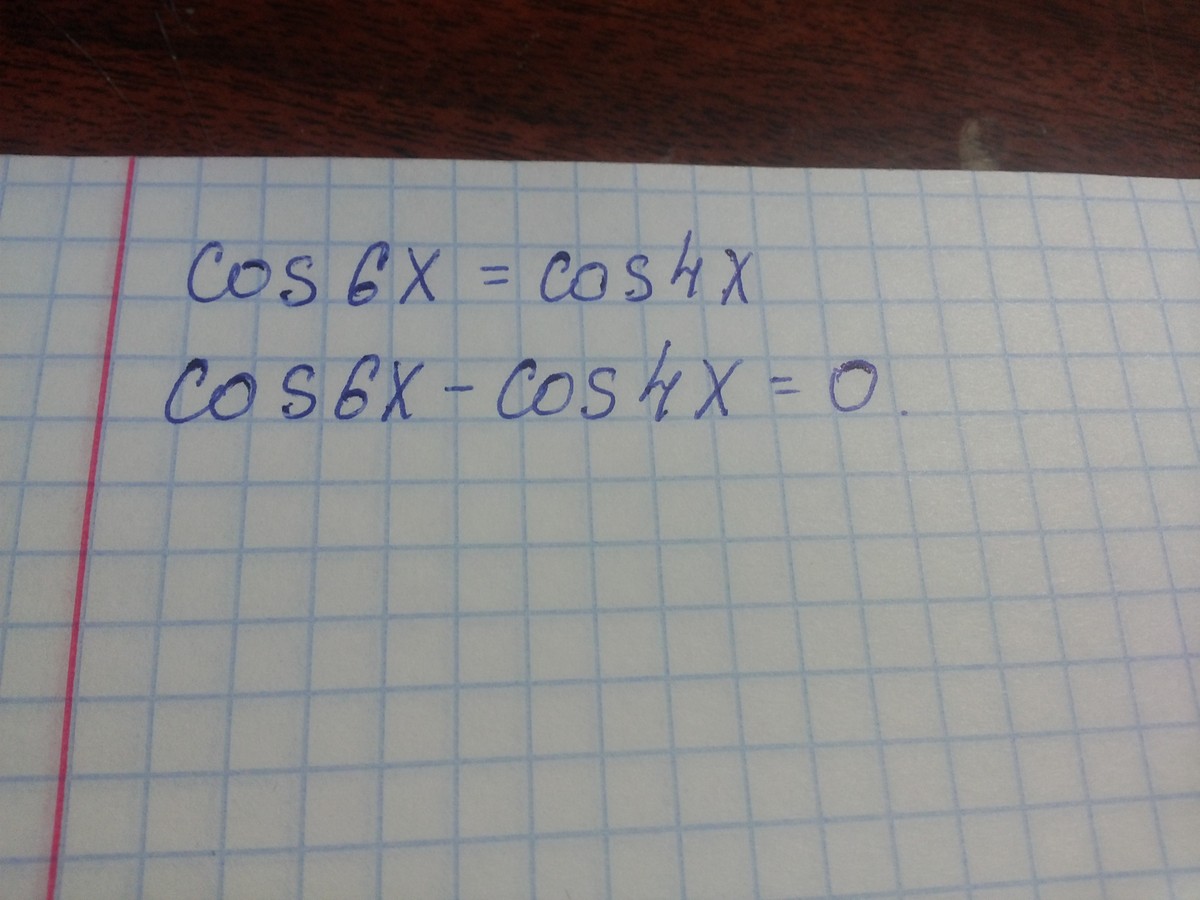 cos 6x = cos 4x
cos 6x - cos 4x = 0.